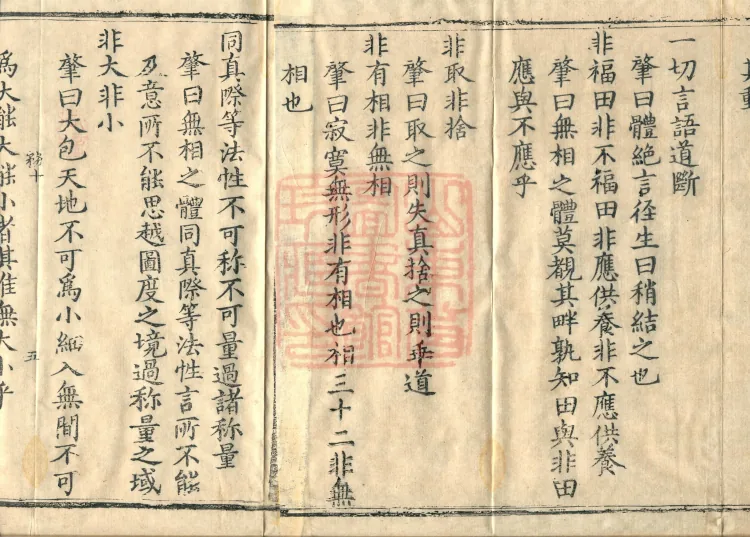 其動
一切言語道斷
肇曰體絶言徑生曰稍結之也
非福田非不福田非應供養非不應供養
肇曰無相之體莫覩其畔孰知田與非田
應與不應乎
非取非捨
肇曰取之則失真捨之則乖道
非有相非無相
肇曰寂寞無形非有相也相三十二非無
相也
同真際等法性不可称不可量過諸称量
肇曰無相之體同真際等法性言所不能
及意所不能思越圖度之境過称量之域
非大非小
肇曰大包天地不可為小細入無間不可
十
五
為大能大能小者其惟無大小乎